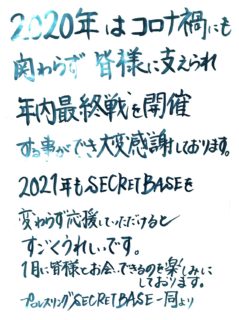 2020年はコロナ禍にも
関わらず皆様に支えられ
年内最終戦を開催
する事ができ大変感謝しております。
2021年もSECRET BASEを
変わらず応援していただけると
すごくうれしいです。
1月に皆様とお会いできるのを楽しみに
しております。
プロレスリングSECRET BASE一同より